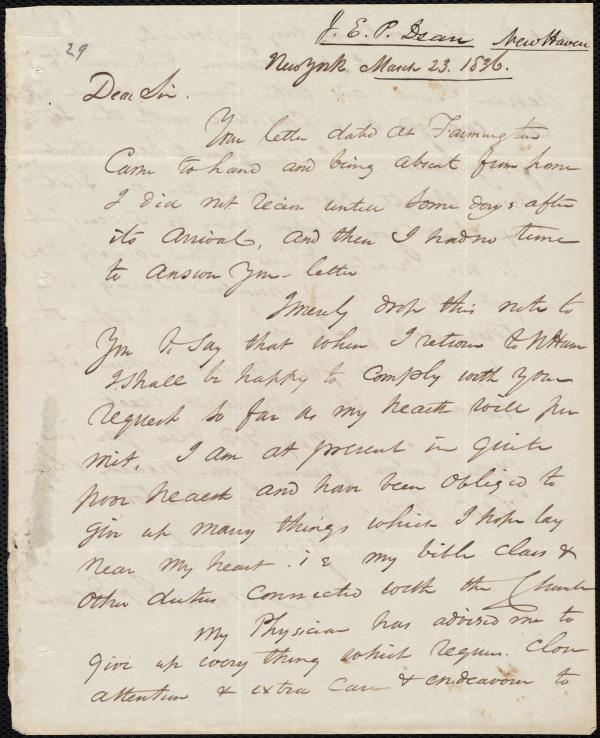 29
J. E. P. Dean New Haven
New York March 23. 1836.
Dear Sir.
Your letter dated at Farmington
Came to hand and being absent from home
I did not recieve untill some days after
its arrival, and then I had no time
to answer your letter
I merely drop this note to
You to say that when I return to NHaven
I shall be happy to comply with your
request so far as my health will per
mit, I am at present in quite
poor health and have been obliged to
give up many things which I hope lay
near my heart. i e my bible class &
other duties connected with the Church
My Physician has advised me to
give up every thing which requires close
attention & extra care & endeavour to